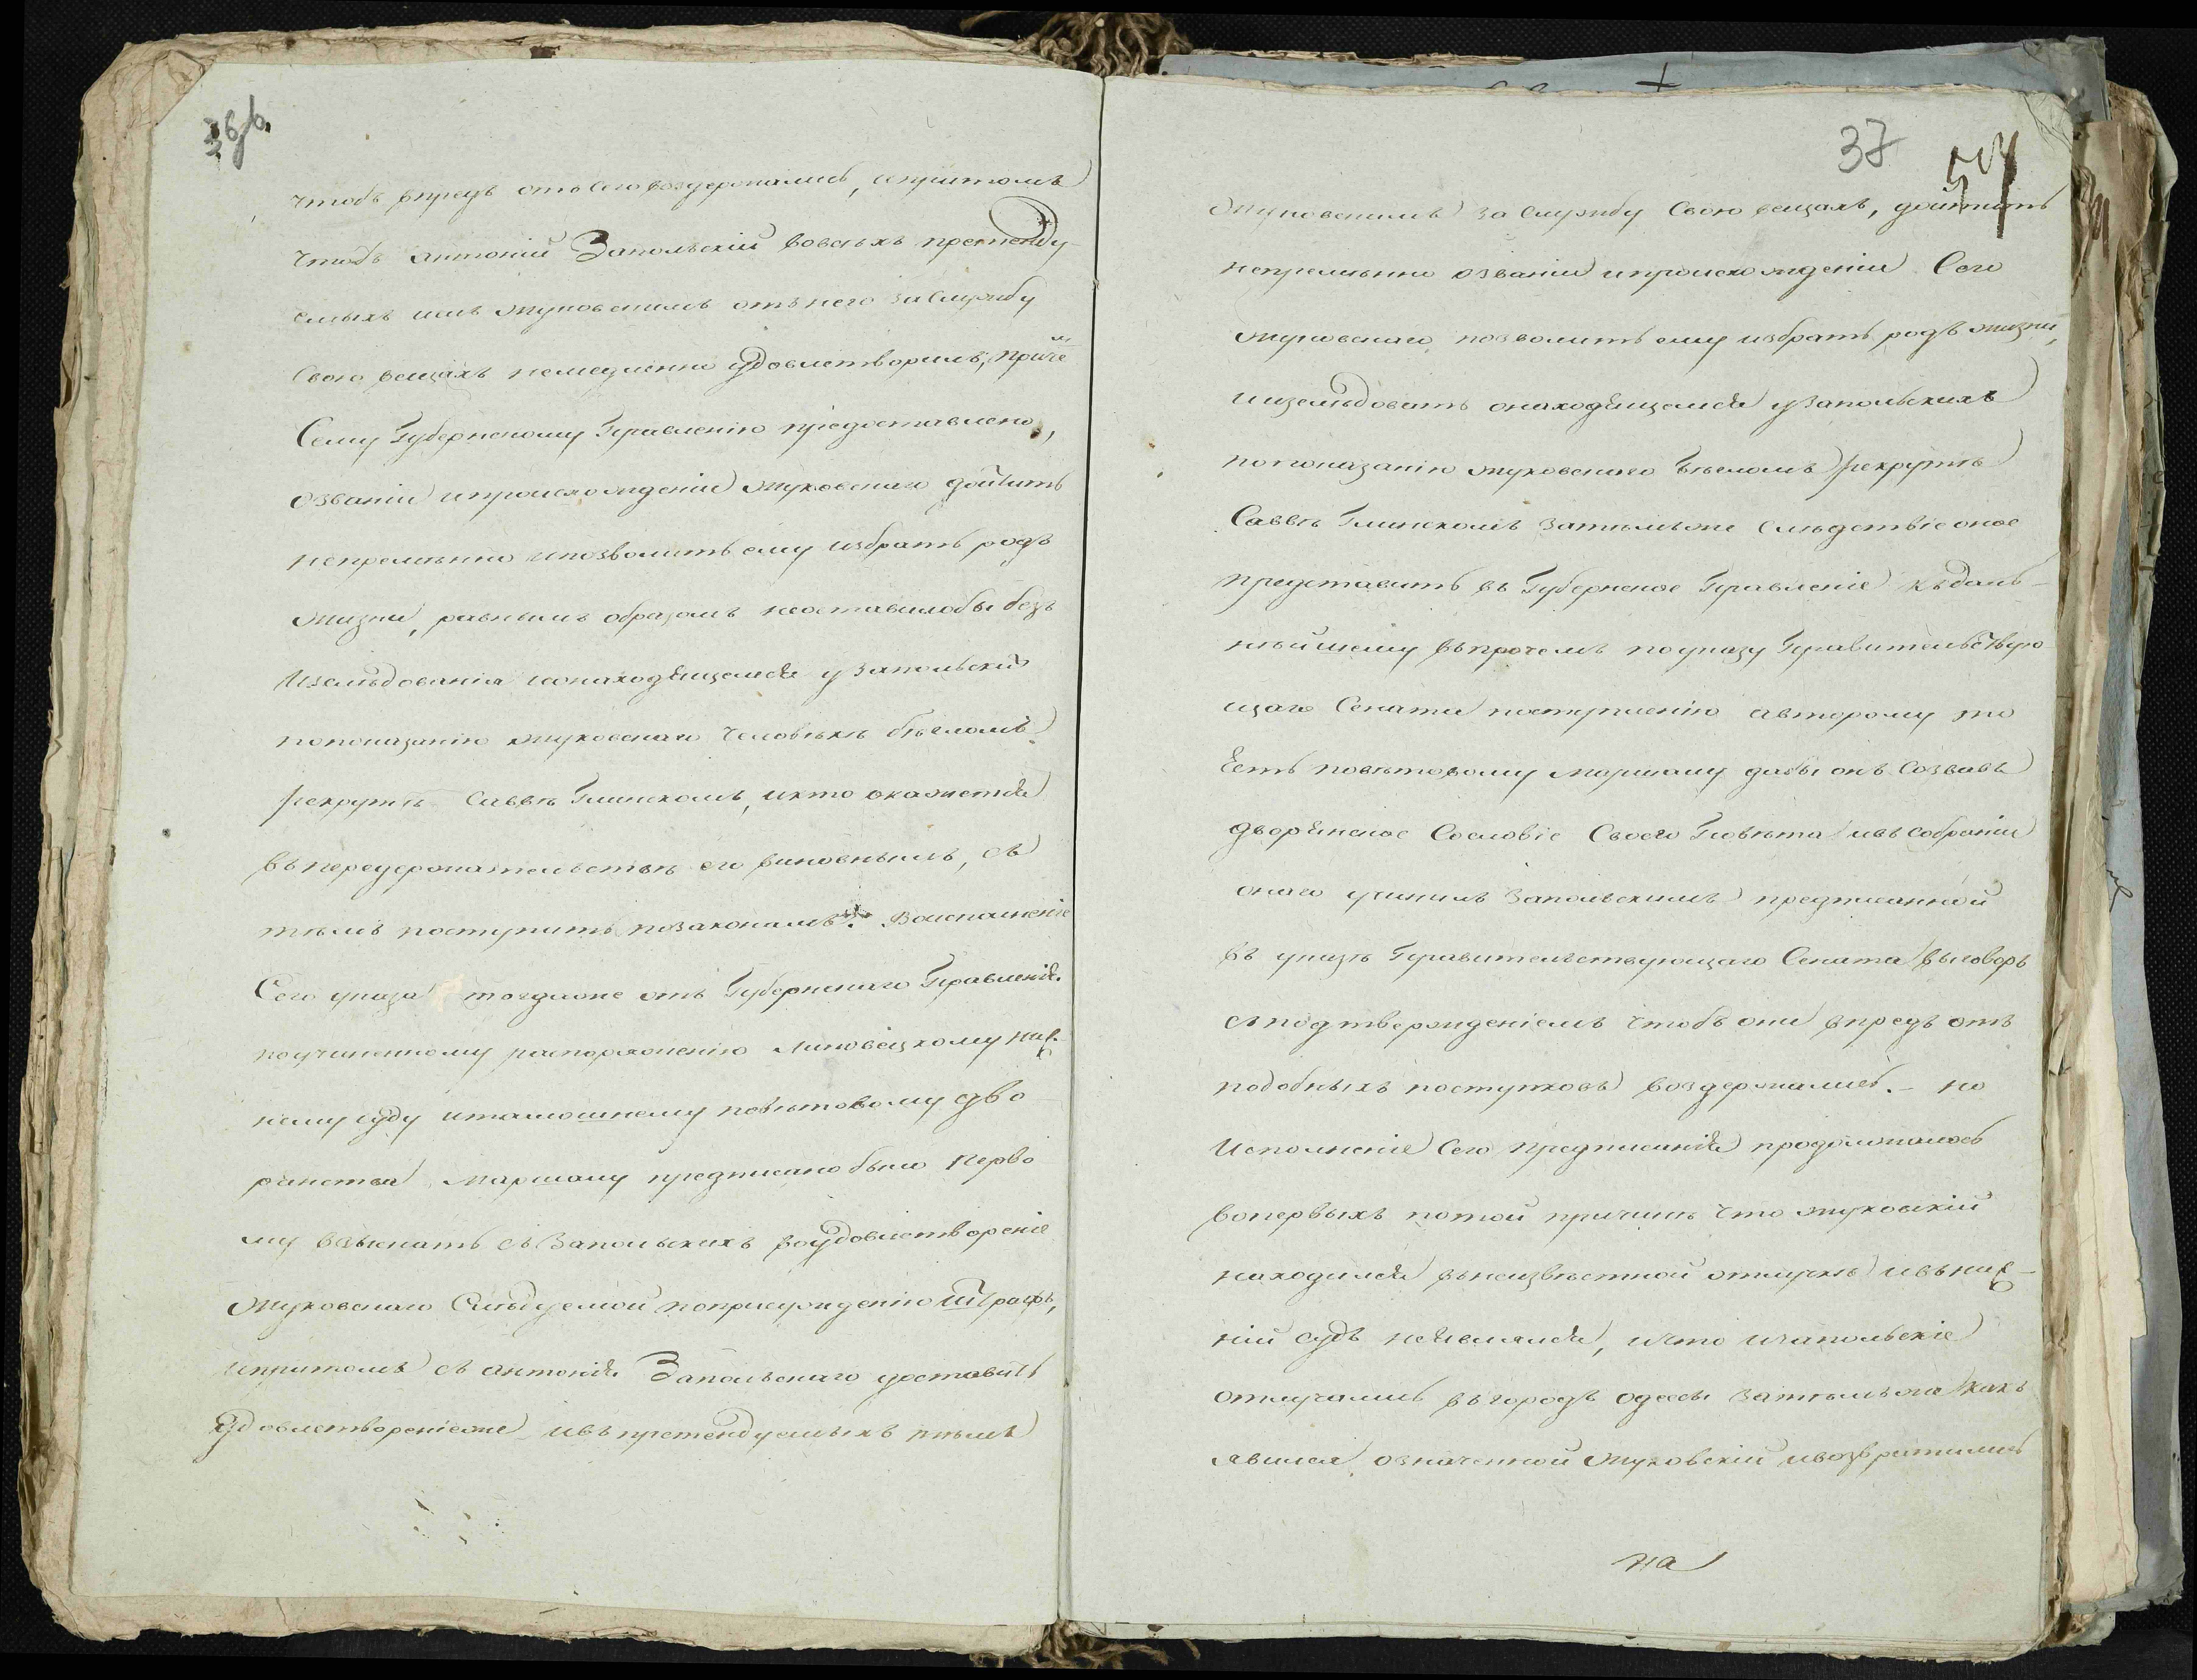 36 об.
чтобъ впредь отъ сего воздержались, ипритомъ
чтобъ Антоній Запольскій вовсехъ претенду-
емыхъ имъ Жуковскимъ отънего заслужбу
свою вещахъ немедленно удовлетворилъ, приче
м
Сему Губернскому Правленію предоставлено,
озваніи ипроисхожденіи Жуковскаго дойтить
непремѣнно ипозволить ему избрать родъ
жизни, равнымъ образомъ неоставилобы безъ
Изслѣдованія ионаходящемся уЗапольскихъ
попоказанію Жуковскаго человѣкѣ бѣгломъ
рекрутѣ Саввѣ Глинскомъ, икто окажется
въпередержательствѣ его виновнымъ, съ
тѣмъ поступить позаконамъ. Воисполненіе
Сего указа тогдаже отъ Губернскаго Правленія
поучиненному распоряженію Липовецкому ниж-
нему суду итамошнему повѣтовому дво-
рянства Маршалу предписано было перво
му взыскать съЗапольскихъ воудовлетвореніе
Жуковскаго Слѣдуемой поприсужденію Штрафъ,
ипритомъ съ Антонія Запольскаго доставить
удовлетвореніеже ивъпретендуемыхъ тѣмъ
37
Жуковскимъ за службу Свою вещахъ, дойтить
непремѣнно озваніи ипроисхожденіи Сего
Жуковскаго, позволить ему избрать родъ жизни,
иизслѣдовать онаходящемся уЗапольскихъ
попоказанію Жуковскаго бѣгломъ рекрутѣ
Саввѣ Глинскомъ затѣмъже слѣдствіе оное
представить въ Губернское Правленіе къдаль-
нѣйшему въпрочемъ поуказу Правительствую
щаго Сената поступленію авторому то
Есть повѣтовому маршалу дабы онъ Созвавъ
дворянское Сословіе Своего Повѣта ивъ собраніи
онаго учинилъ Запольскимъ предписанной
въ указѣ Правительствующаго Сената выговоръ
сподтвержденіемъ чтобъ они впредь отъ
подобныхъ поступковъ воздержались. - но
Исполненіе Сего предписанія продолжалось
вопервыхъ потой причинѣ что Жуковскій
находился внеизвѣстной отлучкѣ ивъниж-
ній судъ неявлялся, ичто иЗапольскіе
отлучались въгородъ Одессы затѣмъже какъ
явился означенной Жуковскій ивозвратились
на